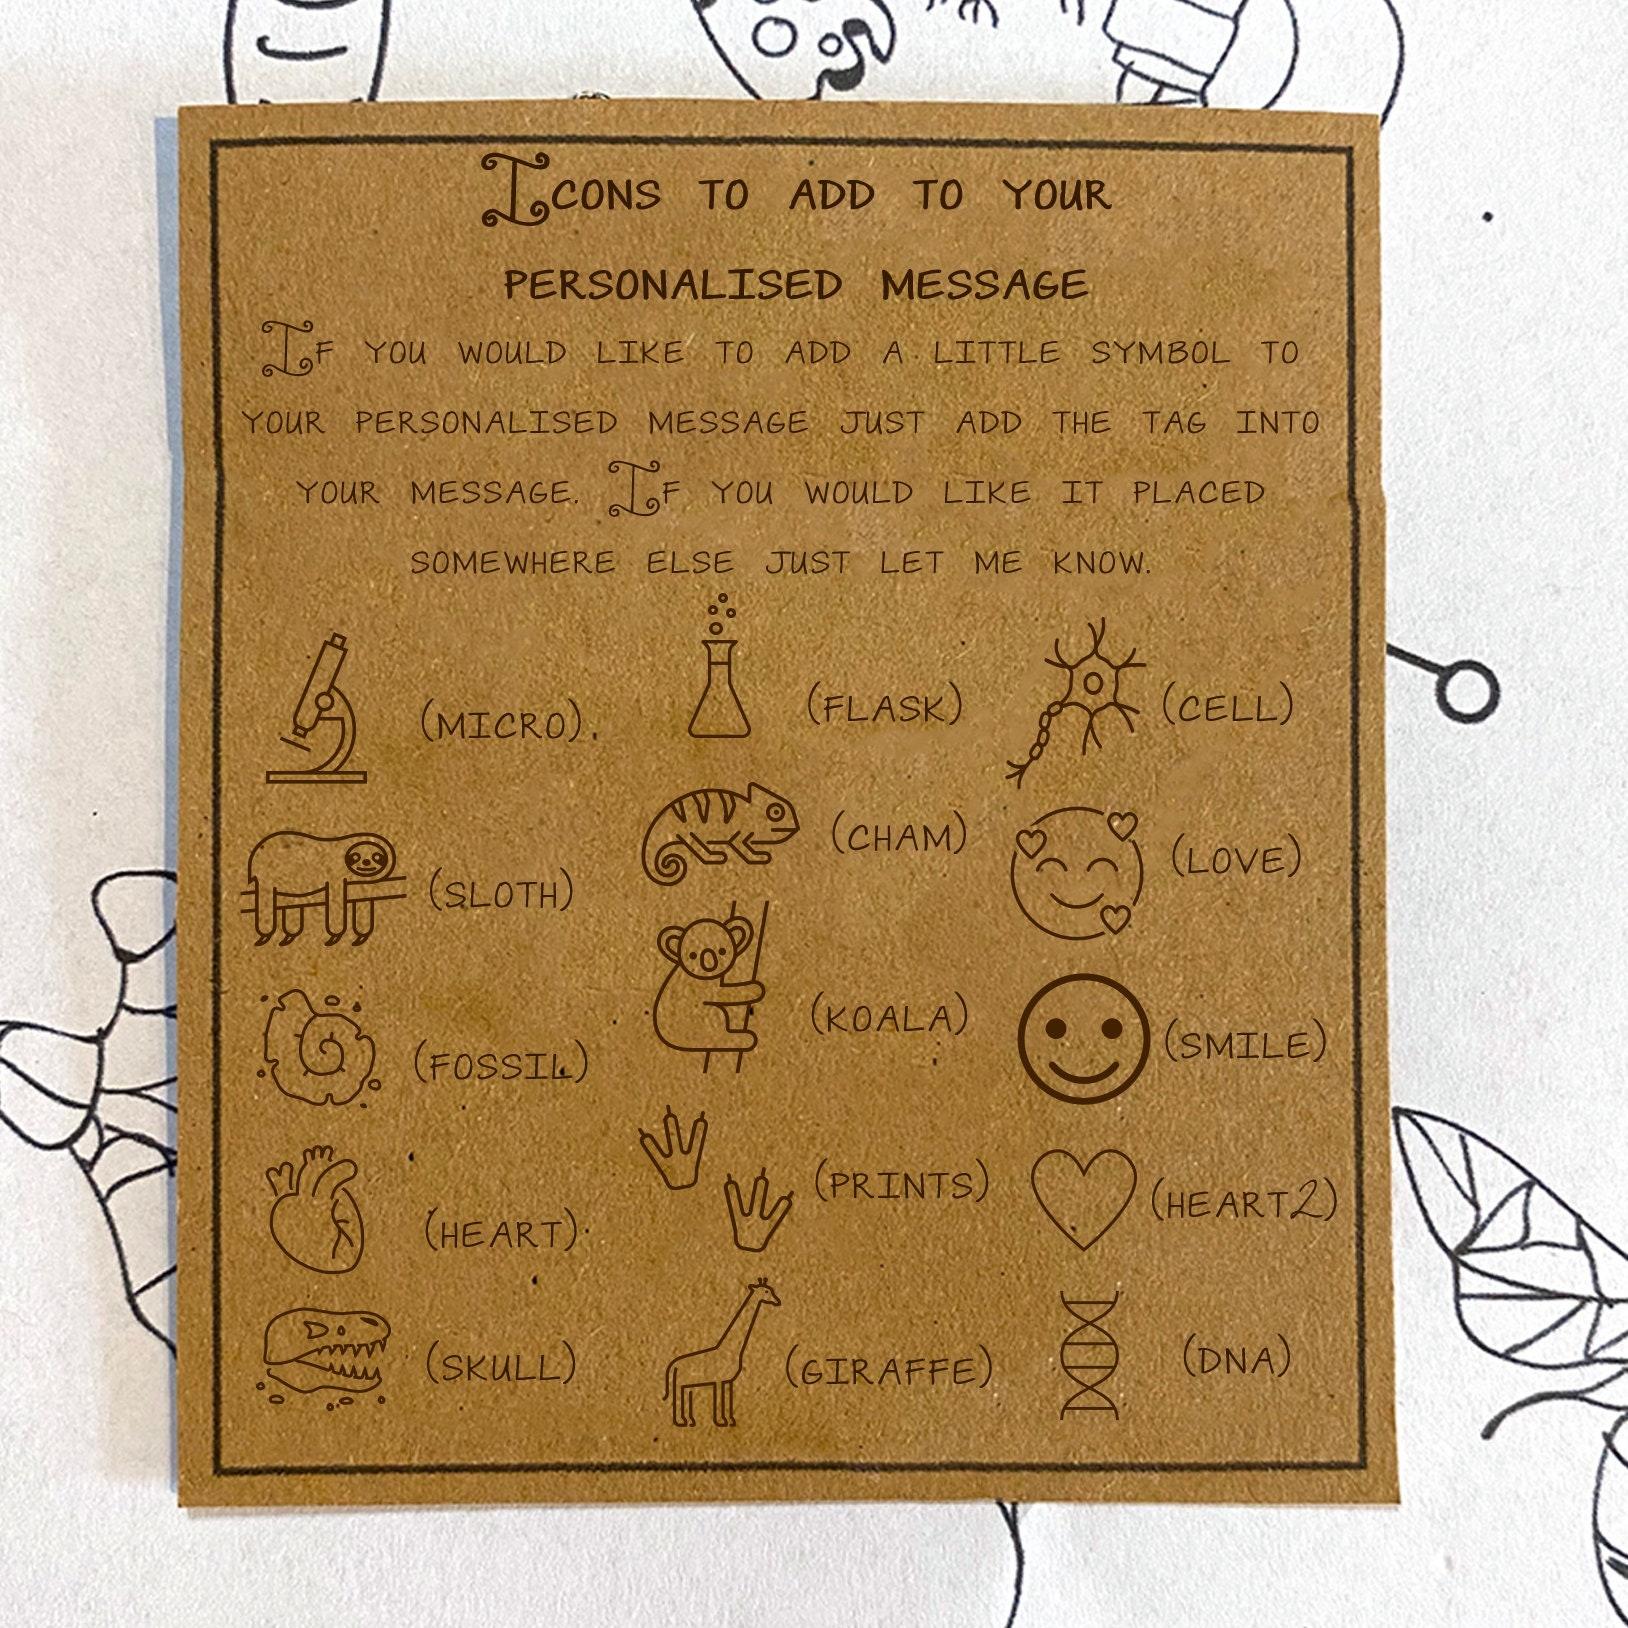 ICONS TO ADD TO YOUR
PERSONALISED MESSAGE
IF YOU WOULD LIKE TO ADD A LITTLE SYMBOL TO
YOUR PERSONALISED MESSAGE JUST ADD THE TAG INTO
YOUR MESSAGE. IF YOU WOULD LIKE IT PLACED
SOMEWHERE ELSE JUST LET ME KNOW.
(MICRO) (FLASK) (CELL)
(SLOTH) (CHAM) (LOVE)
(FOSSIL) (KOALA) (SMILE)
(HEART) (PRINTS) (HEART2)
(SKULL) (GIRAFFE) (DNA)